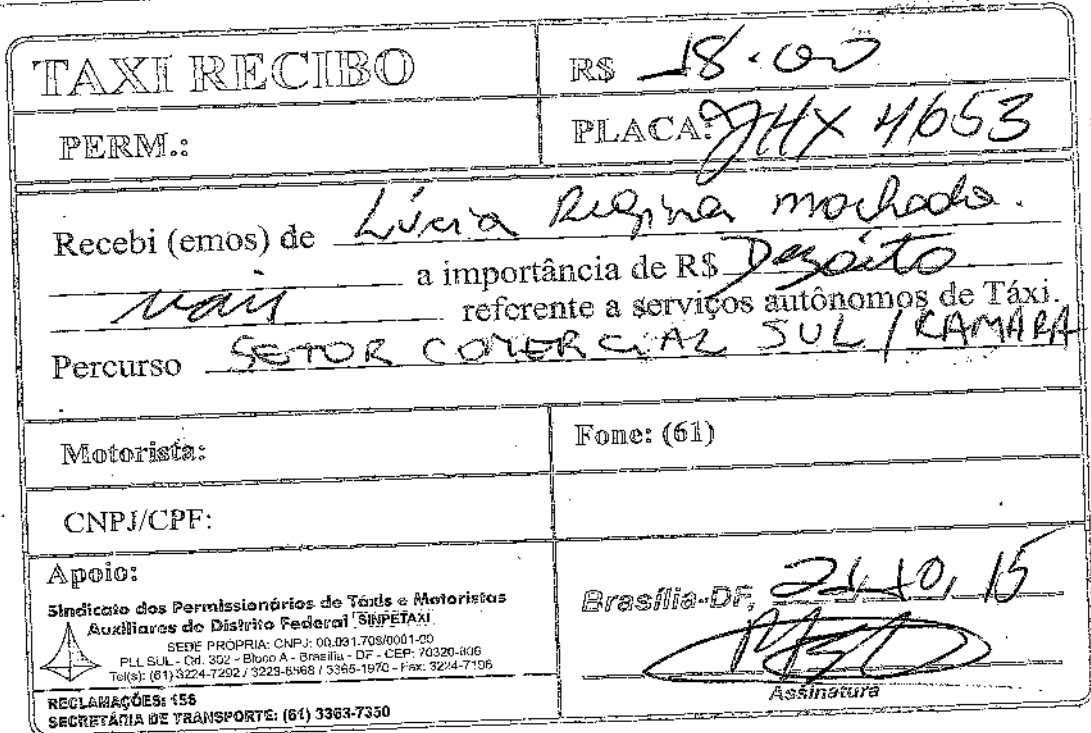 TAXI RECIBO
R$ 18.00
PERM.:
PLACA: JHX 4653
Recebi (emos) de Lúcia Regina machado.
a importância de R$ Dezoito
reais referente a serviços autônomos de Táxi.
Percurso SETOR COMERCIAL SUL / CAMARA
Motorista:
Fone: (61)
CNPJ/CPF:
Apoio:
Sindicato dos Permissionários de Táxis e Motoristas
Auxiliares do Distrito Federal SINPETAXI
SEDE PRÓPRIA: CNPJ: 00.031.708/0001-00
PLL SUL - Qd. 302 - Bloco A - Brasília - DF - CEP: 70320-
Tel(s): (61) 3224-7292 / 3223- / 3365-1970 - Fax: 3224-7196
RECLAMAÇÕES: 156
SECRETÁRIA DE TRANSPORTE: (61) 3363-7350
Brasília-DF, 10, 15
Assinatura